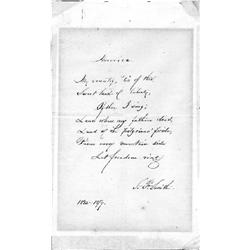 America
My country, 'tis of thee
Sweet land of liberty,
Of thee I sing;
Land where my fathers died,
Land of the pilgrims' pride,
From every mountain side
Let freedom ring
S. F. Smith